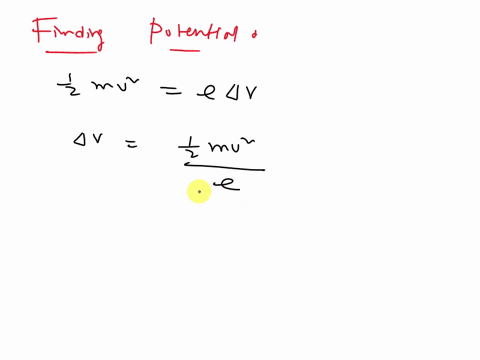 Finding Potential.
½ mv² = e ΔV
ΔV = ½ mv²
e